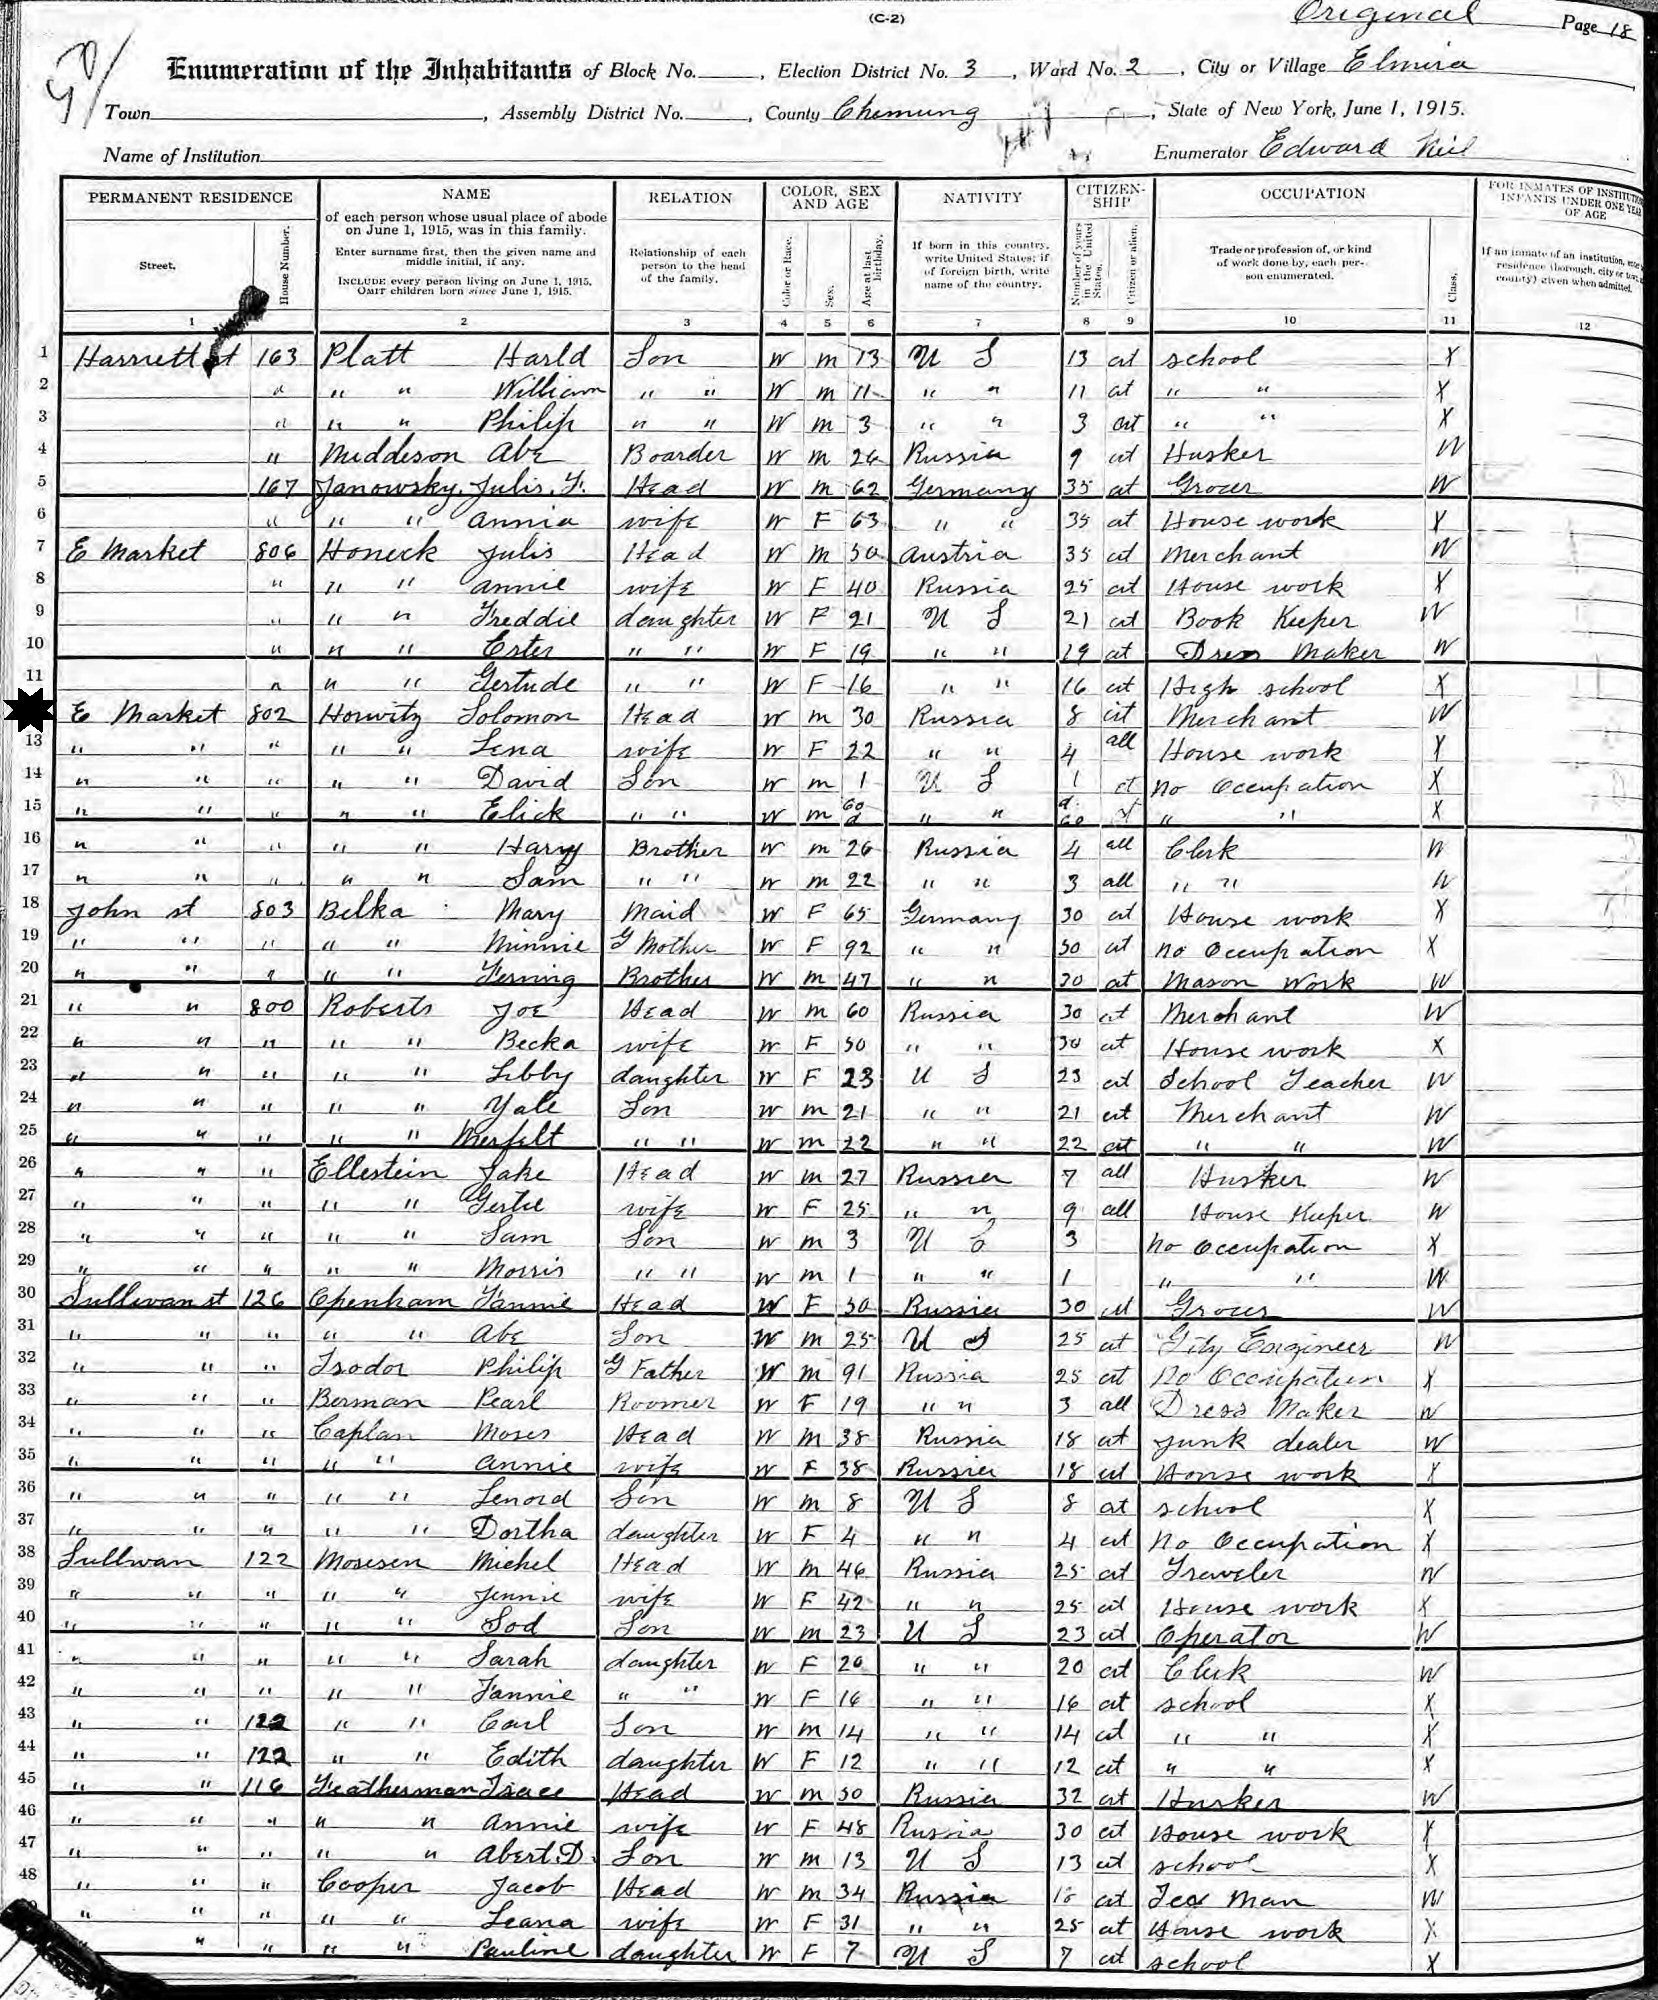 (C-2)
Original Page 18
Enumeration of the Inhabitants of Block No. , Election District No. 3 , Ward No. 2 , City or Village Elmira
Town , Assembly District No. , County Chemung , State of New York, June 1, 1915.
Name of Institution Enumerator Edward
PERMANENT RESIDENCE NAME RELATION COLOR, SEX AND AGE NATIVITY CITIZEN-SHIP OCCUPATION FOR INMATES OF INSTITUTIONS INFANTS UNDER ONE YEAR OF AGE
Street. House Number. of each person whose usual place of abode on June 1, 1915, was in this family. Enter surname first, then the given name and middle initial, if any. INCLUDE every person living on June 1, 1915. OMIT children born since June 1, 1915. Relationship of each person to the head of the family. Color or Race. Sex. Age at last birthday. If born in this country, write United States; if of foreign birth, write name of the country. Number of years in the United States. Citizen or alien. Trade or profession of, or kind of work done by, each person enumerated. Class. If an inmate of an institution, residence (borough, city or county) given when admitted.
1 2 3 4 5 6 7 8 9 10 11 12
1 Harriett st 163 Platt Harld Son W m 13 U S 13 cit school X
2 " " " William " " W m 11 " " 11 cit " " X
3 " " " Philip " " W m 3 " " 3 cit " " X
4 " Middleson Abe Boarder W m 26 Russia 9 cit Husker W
5 167 Janowsky, Julis. F. Head W m 62 Germany 35 cit Grocer W
6 " " " Annia wife W F 63 " " 35 cit House work X
7 E Market 806 Honeck Julis Head W m 50 Austria 35 cit Merchant W
8 " " " Annie wife W F 40 Russia 25 cit House work X
9 " " " Freddie daughter W F 21 U S 21 cit Book Keeper W
10 " " " Ester " " W F 19 " " 19 cit Dress Maker W
11 " " " Gertude " " W F 16 " " 16 cit High school X
E Market 802 Horwitz Solomon Head W m 30 Russia 8 cit Merchant W
13 " " " " " Lena wife W F 22 " " 4 all House work X
14 " " " " " David Son W m 1 U S 1 cit no Occupation X
15 " " " " " Elick " " W m 60 d " " d. 60 cit " " X
16 " " " " " Harry Brother W m 26 Russia 4 all Clerk W
17 " " " " " Sam " " W m 22 " " 3 all " " W
18 John st 803 Belka Mary Maid W F 65 Germany 30 cit House work X
19 " " " " " Minnie G Mother W F 92 " " 30 cit no Occupation X
20 " " " " " Ferning Brother W m 47 " " 30 cit Mason Work W
21 " " 800 Roberts Joe Head W m 60 Russia 30 cit Merchant W
22 " " " " " Becka wife W F 50 " " 30 cit House work X
23 " " " " " Libby daughter W F 23 U S 23 cit School Teacher W
24 " " " " " Yale Son W m 21 " " 21 cit Merchant W
25 " " " " " Merfelt " " W m 22 " " 22 cit " " W
26 " " " Ellestein Jake Head W m 27 Russia 7 all Husker W
27 " " " " " Gertie wife W F 25 " " 9 all House Keeper W
28 " " " " " Sam Son W m 3 U S 3 no Occupation X
29 " " " " " Morris " " W m 1 " " 1 " " W
30 Sullivan st 126 Openham Fannie Head W F 50 Russia 30 cit Grocer W
31 " " " " " Abe Son W m 25 U S 25 cit City Engineer W
32 " " " Isodor Philip G Father W m 91 Russia 25 cit No Occupation X
33 " " " Berman Pearl Roomer W F 19 " " 3 all Dress Maker W
34 " " " Caplan Moses Head W m 38 Russia 18 cit junk dealer W
35 " " " " " Annie wife W F 38 Russia 18 cit House work X
36 " " " " " Lenord Son W m 8 U S 8 cit school X
37 " " " " " Dortha daughter W F 4 " " 4 cit no Occupation X
38 Sullivan 122 Mosesen Michel Head W m 46 Russia 25 cit Traveler W
39 " " " " " Jennie wife W F 42 " " 25 cit House work X
40 " " " " " Sod Son W m 23 U S 23 cit Operator W
41 " " " " " Sarah daughter W F 20 " " 20 cit Clerk W
42 " " " " " Fannie " " W F 16 " " 16 cit school X
43 " " 122 " " Carl Son W m 14 " " 14 cit " " X
44 " " 122 " " Edith daughter W F 12 " " 12 cit " " X
45 " " 116 Featherman Isace Head W m 50 Russia 32 cit Husker W
46 " " " " " Annie wife W F 48 Russia 30 cit House work X
47 " " " " " Abert. D. Son W m 13 U S 13 cit school X
48 " " " Cooper Jacob Head W m 34 Russia cit Tea Man W
" " " " " Leana wife W F 31 " " 25 cit House work X
" " " " Pauline daughter W F 7 U S 7 cit school X